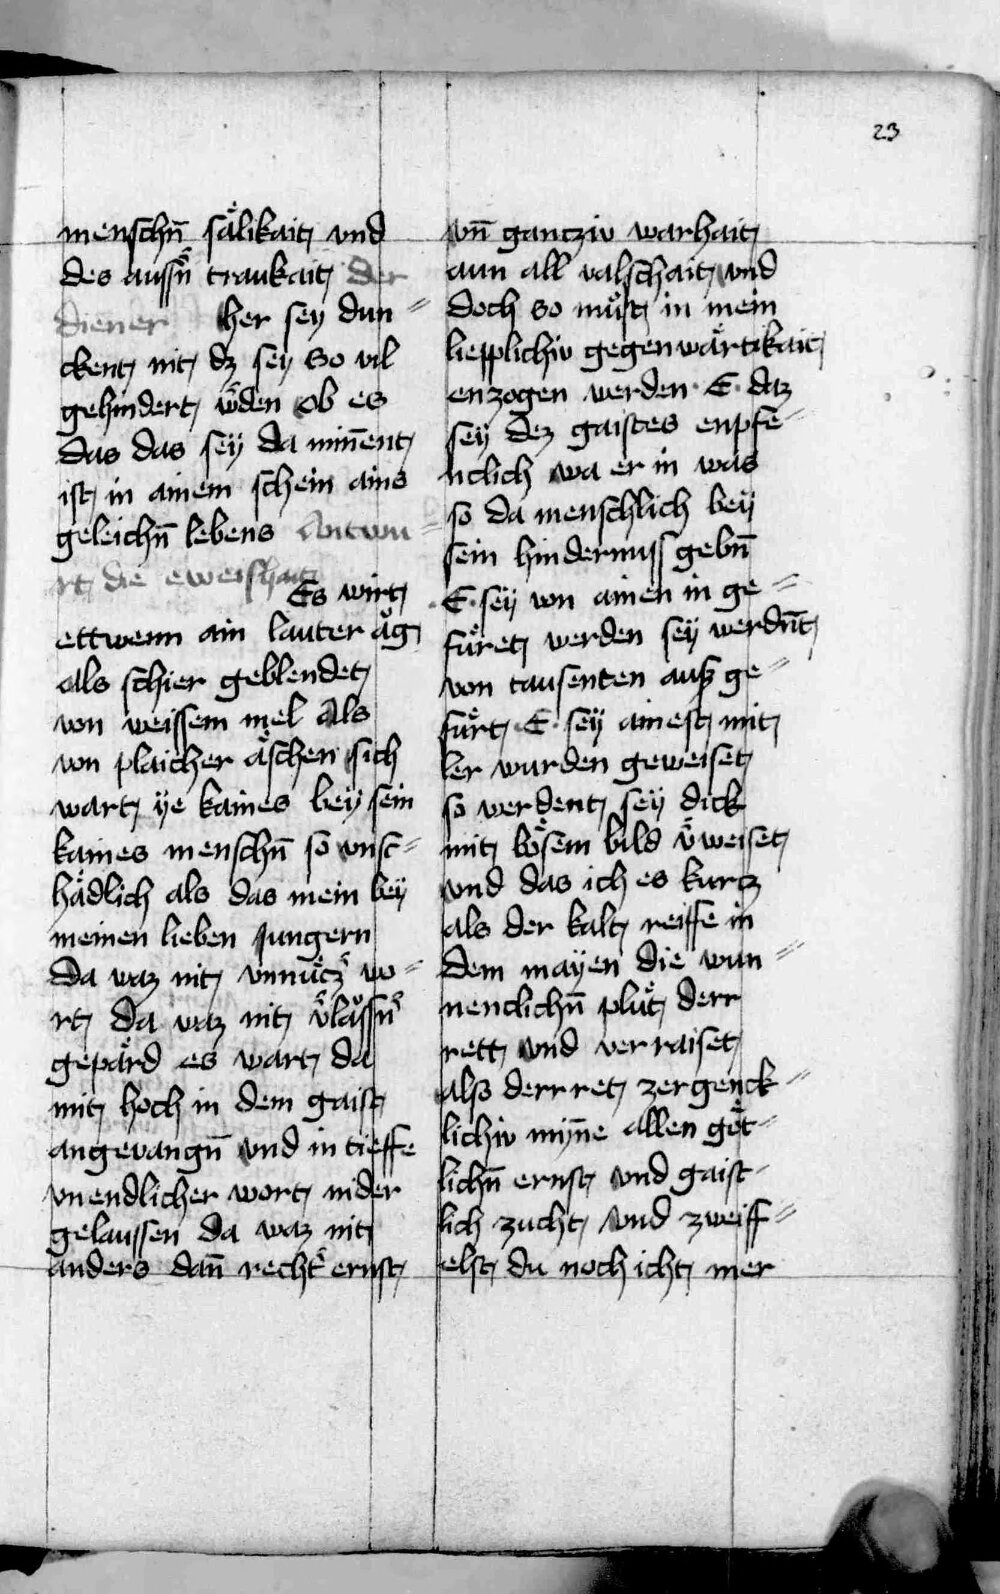 23
menschn̄ sälikait vnd
des aussn̄ traukait der
diener her sey dun=
ckent nit dz sey so vil
gehindert wͤden ob es
das das sey da min̄ent
ist in ainem schein ains
geleichn̄ lebens Antwu=
rt die eweishait
Es wirt
ettwenn ain lauter äg
als schier geblendet
von weissem mel als
von plaicher äschen sich
wart ye kaines bey sein
kaines menschn̄ so vnsc=
hädlich als das mein bey
meinen lieben jungern
da waz nit vnnützͤ wo=
rt da waz nit vͤlaͧssnͤ
gepärd es wart da
mit hoch in dem gaist
angevangn̄ vnd in tieffe
vnendlicher wort nider
gelaussen da waz nit
anders dan̄ rechtͤ ernst
vn̄ gancziv warhait
aun all valschait vnd
doch so müst in mein
liepplichiv gegenwärtikait
enzogen werden · E · daz
sey dez gaistes enpfe=
nclich wa er in was
so da menschlich bey
sein hindernuss gebn̄
· E · sey von ainen in ge=
füret werden sey werdn̄t
von tausenten ausz ge=
fürt · E · sey ainest mit
ler wurden geweiset
so werdent sey dick
mit bösem bild vͤweiset
vnd das ich es kurtz
als der kalt reiffe in
dem mayen die wun=
nenclichn̄ plüt derr
rett vnd verraiset
also derrret zergenck=
lichiv myn̄e allen göt=
lichn̄ ernst vnd gaist=
lich zucht vnd zweiff=
elst du noch icht mer